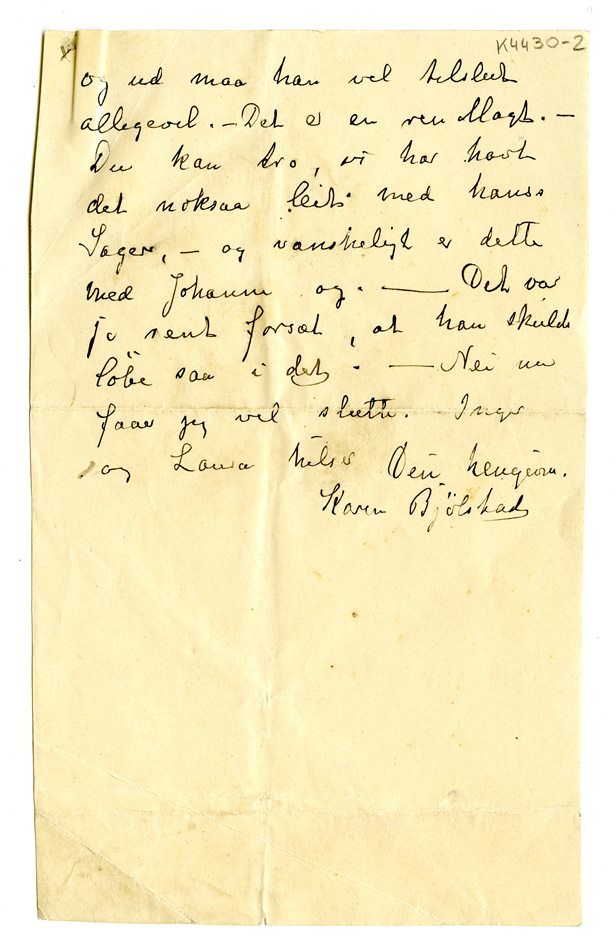 K4430-2
og ud maa han vel tilslut
allegevel. - Det er en ren Magt. -
Du kan tro, vi har havt
det noksaa leit med hanss
Sager, - og vanskeligt er dette
med Johanne og. — Det var
jo sent forsøt, at han skulde
löbe saa i det. — Nei nu
faar jeg vel slutte. Inger
og Laura hilser Din hengivne.
Karen Bjölstad